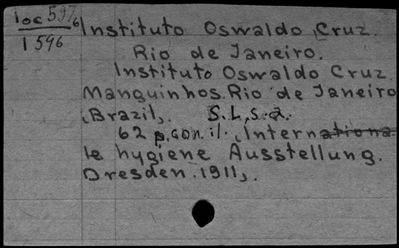 loc 597/6
1596
Instituto Oswaldo Cruz.
Rio de Janeiro.
Instituto Oswaldo Cruz.
Manguinhos Rio de Janeiro
(Brazil). S.L., s.a.
62 p. con il. (Internationa
le hygiene Ausstellung.
Dresden. 1911).